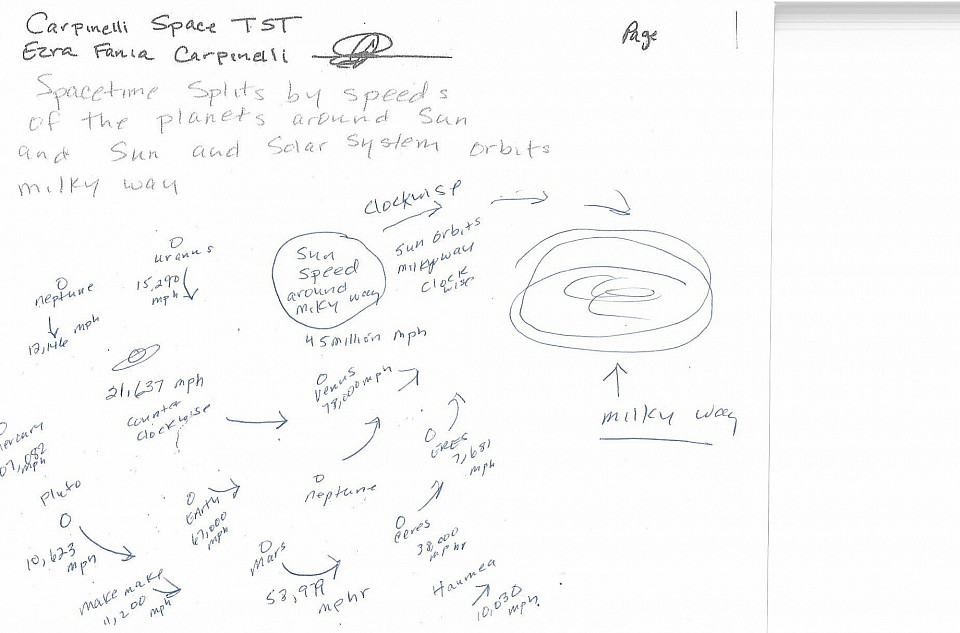 Carpinelli Space TST
Ezra Fania Carpinelli
Page 1
Spacetime Splits by speeds
of the planets around Sun
and Sun and Solar System orbits
milky way
clockwise
Sun
speed
around
milky way
Sun orbits
milkyway
clock
wise
45million mph
uranus
15,290
mph
neptune
12,146 mph
21,637 mph
counter
clockwise
Venus
78,000mph
milky way
ERES
7,681
mph
ercury
07,082
mph
Pluto
10,623
mph
EArth
67,000
mph
neptune
Ceres
38,000
mphr
Mars
53,979
mphr
make make
11,200
mph
Haumea
10,030
mph.